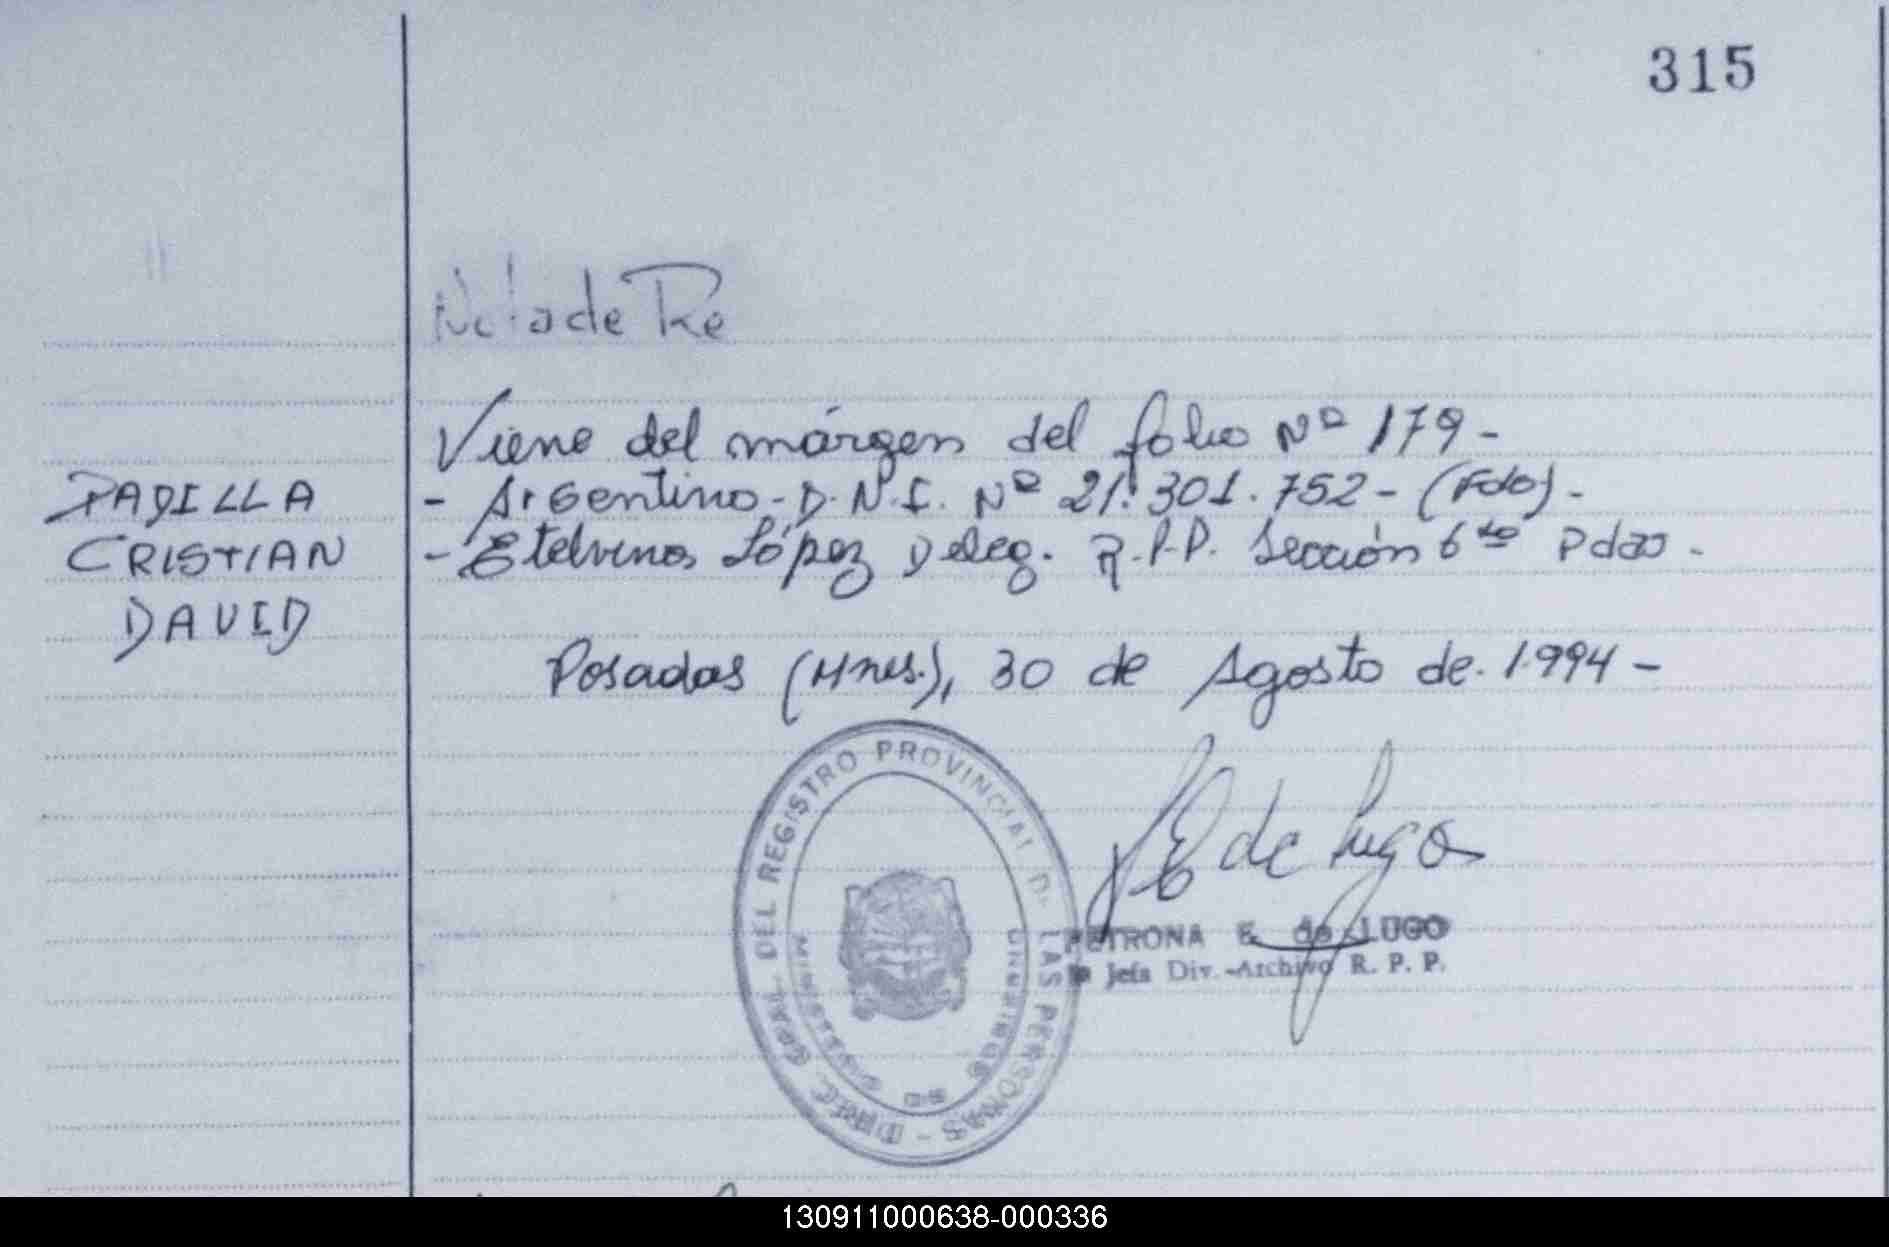 315
Nota de Re
Viene del márgen del folio Nº 179-
PADILLA
- Argentino - D.N.I. Nº 21.301.752 - (Fdo) -
CRISTIAN
- Etelvina López Deleg. R.P.P. Sección 6ta Pdas -
DAVID
Posadas (Mnes.), 30 de Agosto de 1.994 -
DIREC. GRAL. DEL REGISTRO PROVINCIAL DE LAS PERSONAS -
MISIONES
E de Lugo
PETRONA E. de LUGO
Jefa Div. -Archivo R. P. P.
130911000638-000336